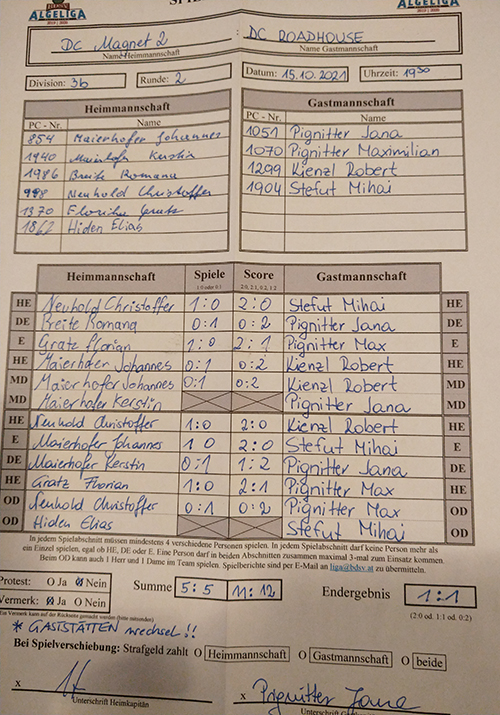 ALGELIGA
ALGELIGA
DC Magnet 2 : DC ROADHOUSE
Name Heimmannschaft Name Gastmannschaft
Division: 3b Runde: 2 Datum: 15.10.2021 Uhrzeit: 19³⁰
Heimmannschaft Gastmannschaft
PC - Nr. Name PC - Nr. Name
854 Maierhofer Johannes 1051 Pignitter Jana
1940 Kerstin 1070 Pignitter Maximilian
1986 Breite Romana 1299 Kienzl Robert
998 Neuhold Christoffer 1904 Stefut Mihai
1370
1862 Hiden Elias
Heimmannschaft Spiele Score Gastmannschaft
1:0 or 0:1 2:0, 2:1, 0:2, 1:2
HE Neuhold Christoffer 1:0 2:0 Stefut Mihai HE
DE Breite Romana 0:1 0:2 Pignitter Jana DE
E Gratz Florian 1:0 2:1 Pignitter Max E
HE Maierhofer Johannes 0:1 0:2 Kienzl Robert HE
MD Maierhofer Johannes 0:1 0:2 Kienzl Robert MD
MD Maierhofer Kerstin Pignitter Jana MD
HE Neuhold Christoffer 1:0 2:0 Kienzl Robert HE
E Maierhofer Johannes 1 0 2:0 Stefut Mihai E
DE Maierhofer Kerstin 0:1 1:2 Pignitter Jana DE
HE Gratz Florian 1:0 2:1 Pignitter Max HE
OD Neuhold Christoffer 0:1 0:2 Pignitter Max OD
OD Hiden Elias Stefut Mihai OD
In jedem Spielabschnitt müssen mindestens 4 verschiedene Personen spielen. In jedem Spielabschnitt darf keine Person mehr als
ein Einzel spielen, egal ob HE, DE oder E. Eine Person darf in beiden Abschnitten zusammen maximal 3-mal zum Einsatz kommen.
Beim OD kann auch 1 Herr und 1 Dame im Team spielen. Spielberichte sind per E-Mail an liga@bdsv.at zu übermitteln.
Protest: O Ja Nein Summe 5:5 11:12 Endergebnis 1:1
Vermerk: Ja O Nein (2:0 od. 1:1 od. 0:2)
Ein Vermerk kann auf der Rückseite gemacht werden (bitte mitsenden)
* GASTSTÄTTEN wechsel!!
Bei Spielverschiebung: Strafgeld zahlt O Heimmannschaft O Gastmannschaft O beide
x x Pignitter Jana
Unterschrift Heimkapitän Unterschrift